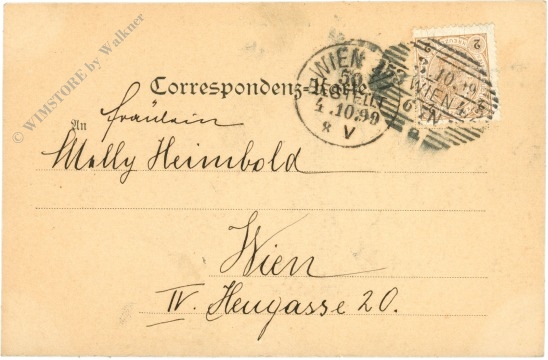 © WIMSTORE by Walkner
Correspondenz-Karte
An
Fräulein
Melly Heimbold
Wien
IV. Heugasse 20.
WIEN
50
BESTELLT
4.10.99
8 V
2
3.10.99
WIEN 4/5
6-7 N